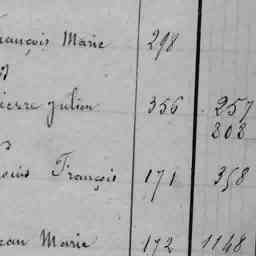 rançois Marie 298
ierre Julien 356 257
808
ouis François 171 358
ean Marie 172 1148